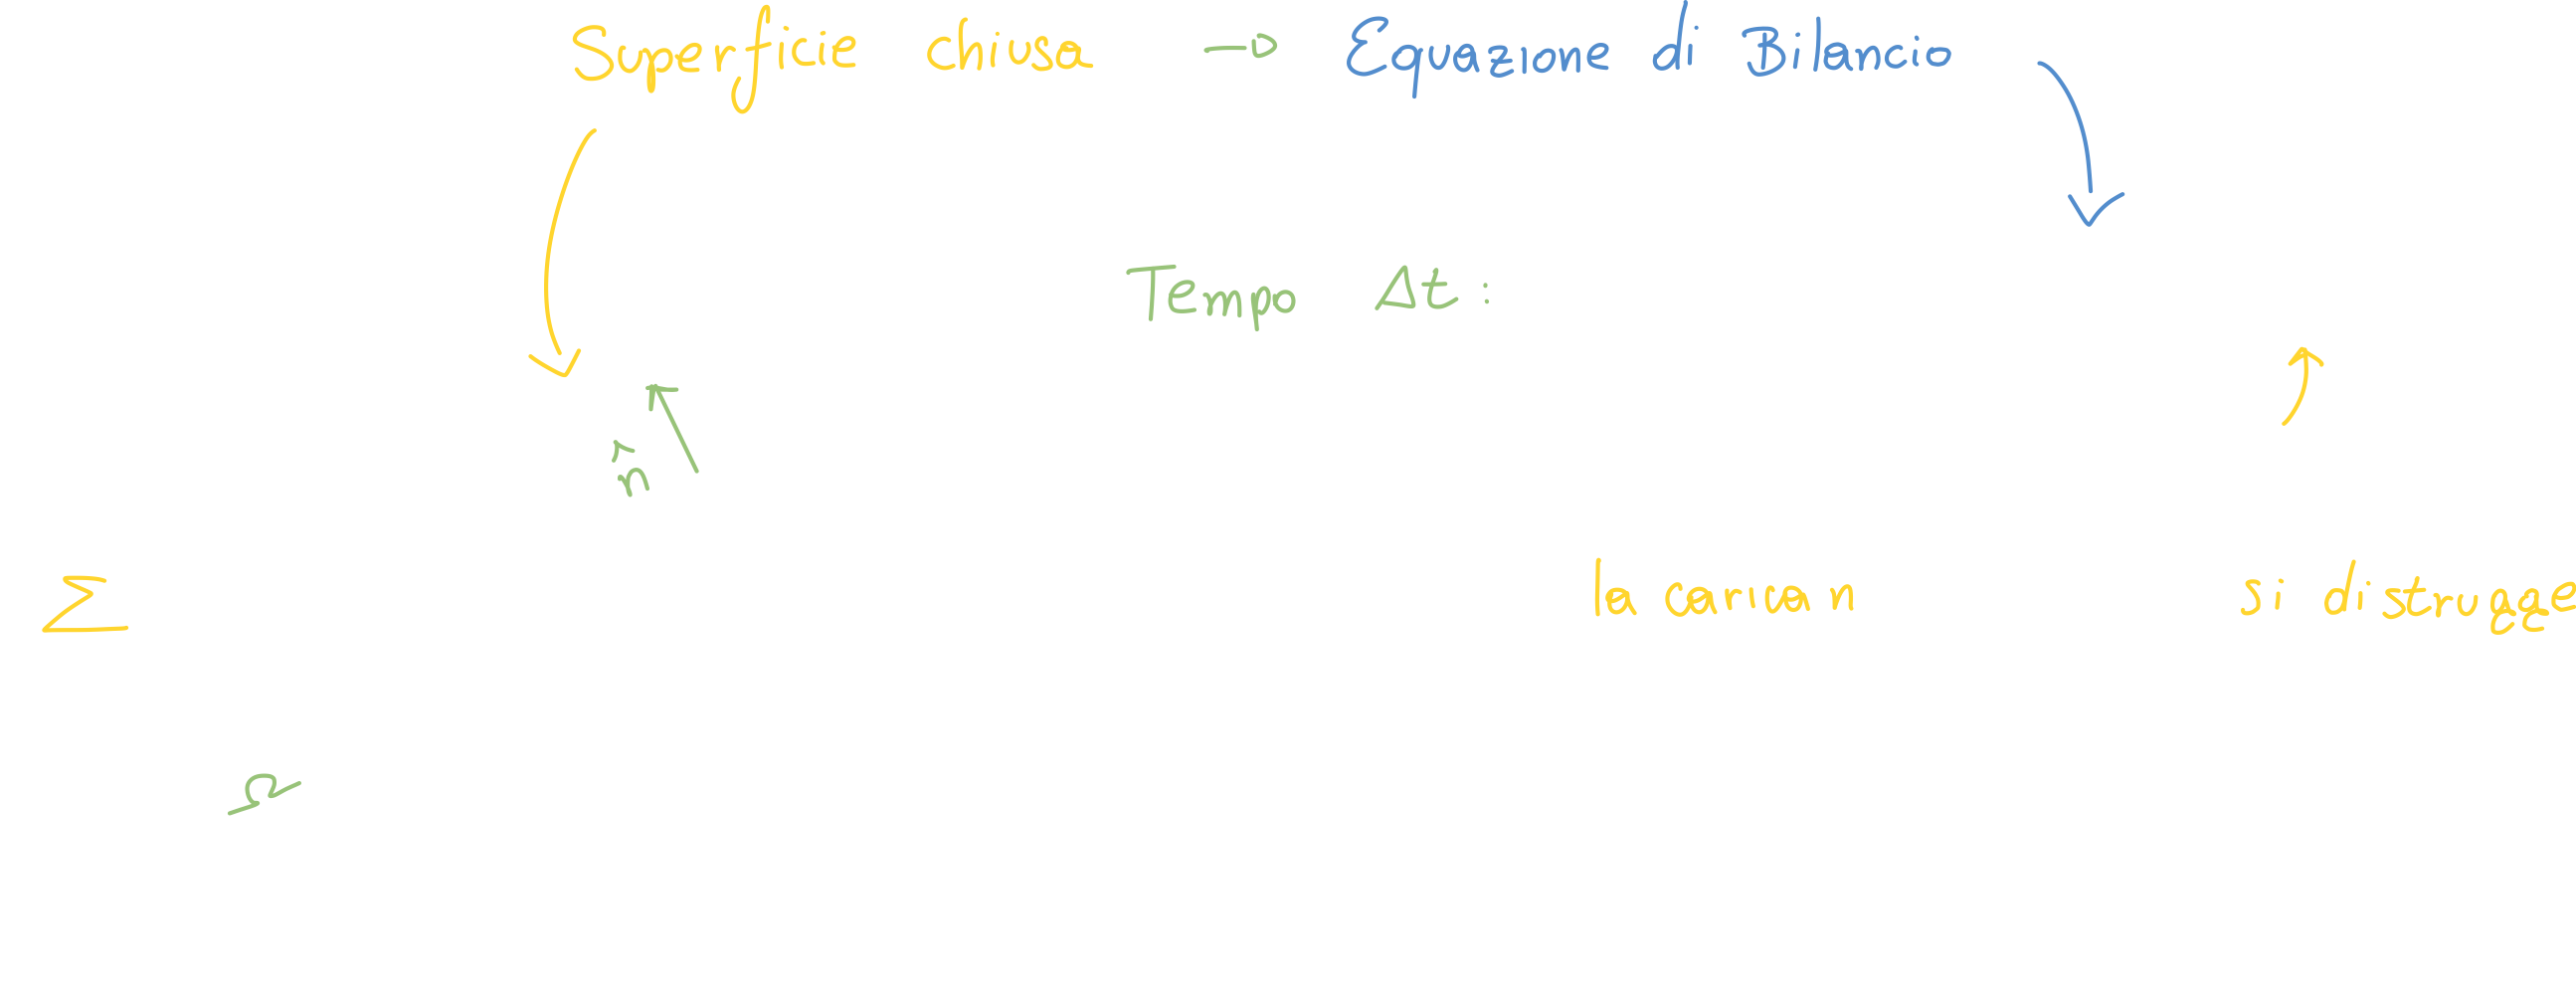 Superficie Chiusa → Equazione di Bilancio
Tempo Δt :
n̂
Σ
la carica n
si distrugge
Ω